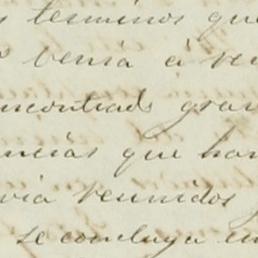 s terminos que
venia á ver
ncontrads gran
ncias que han
via reunidos
se concluya en